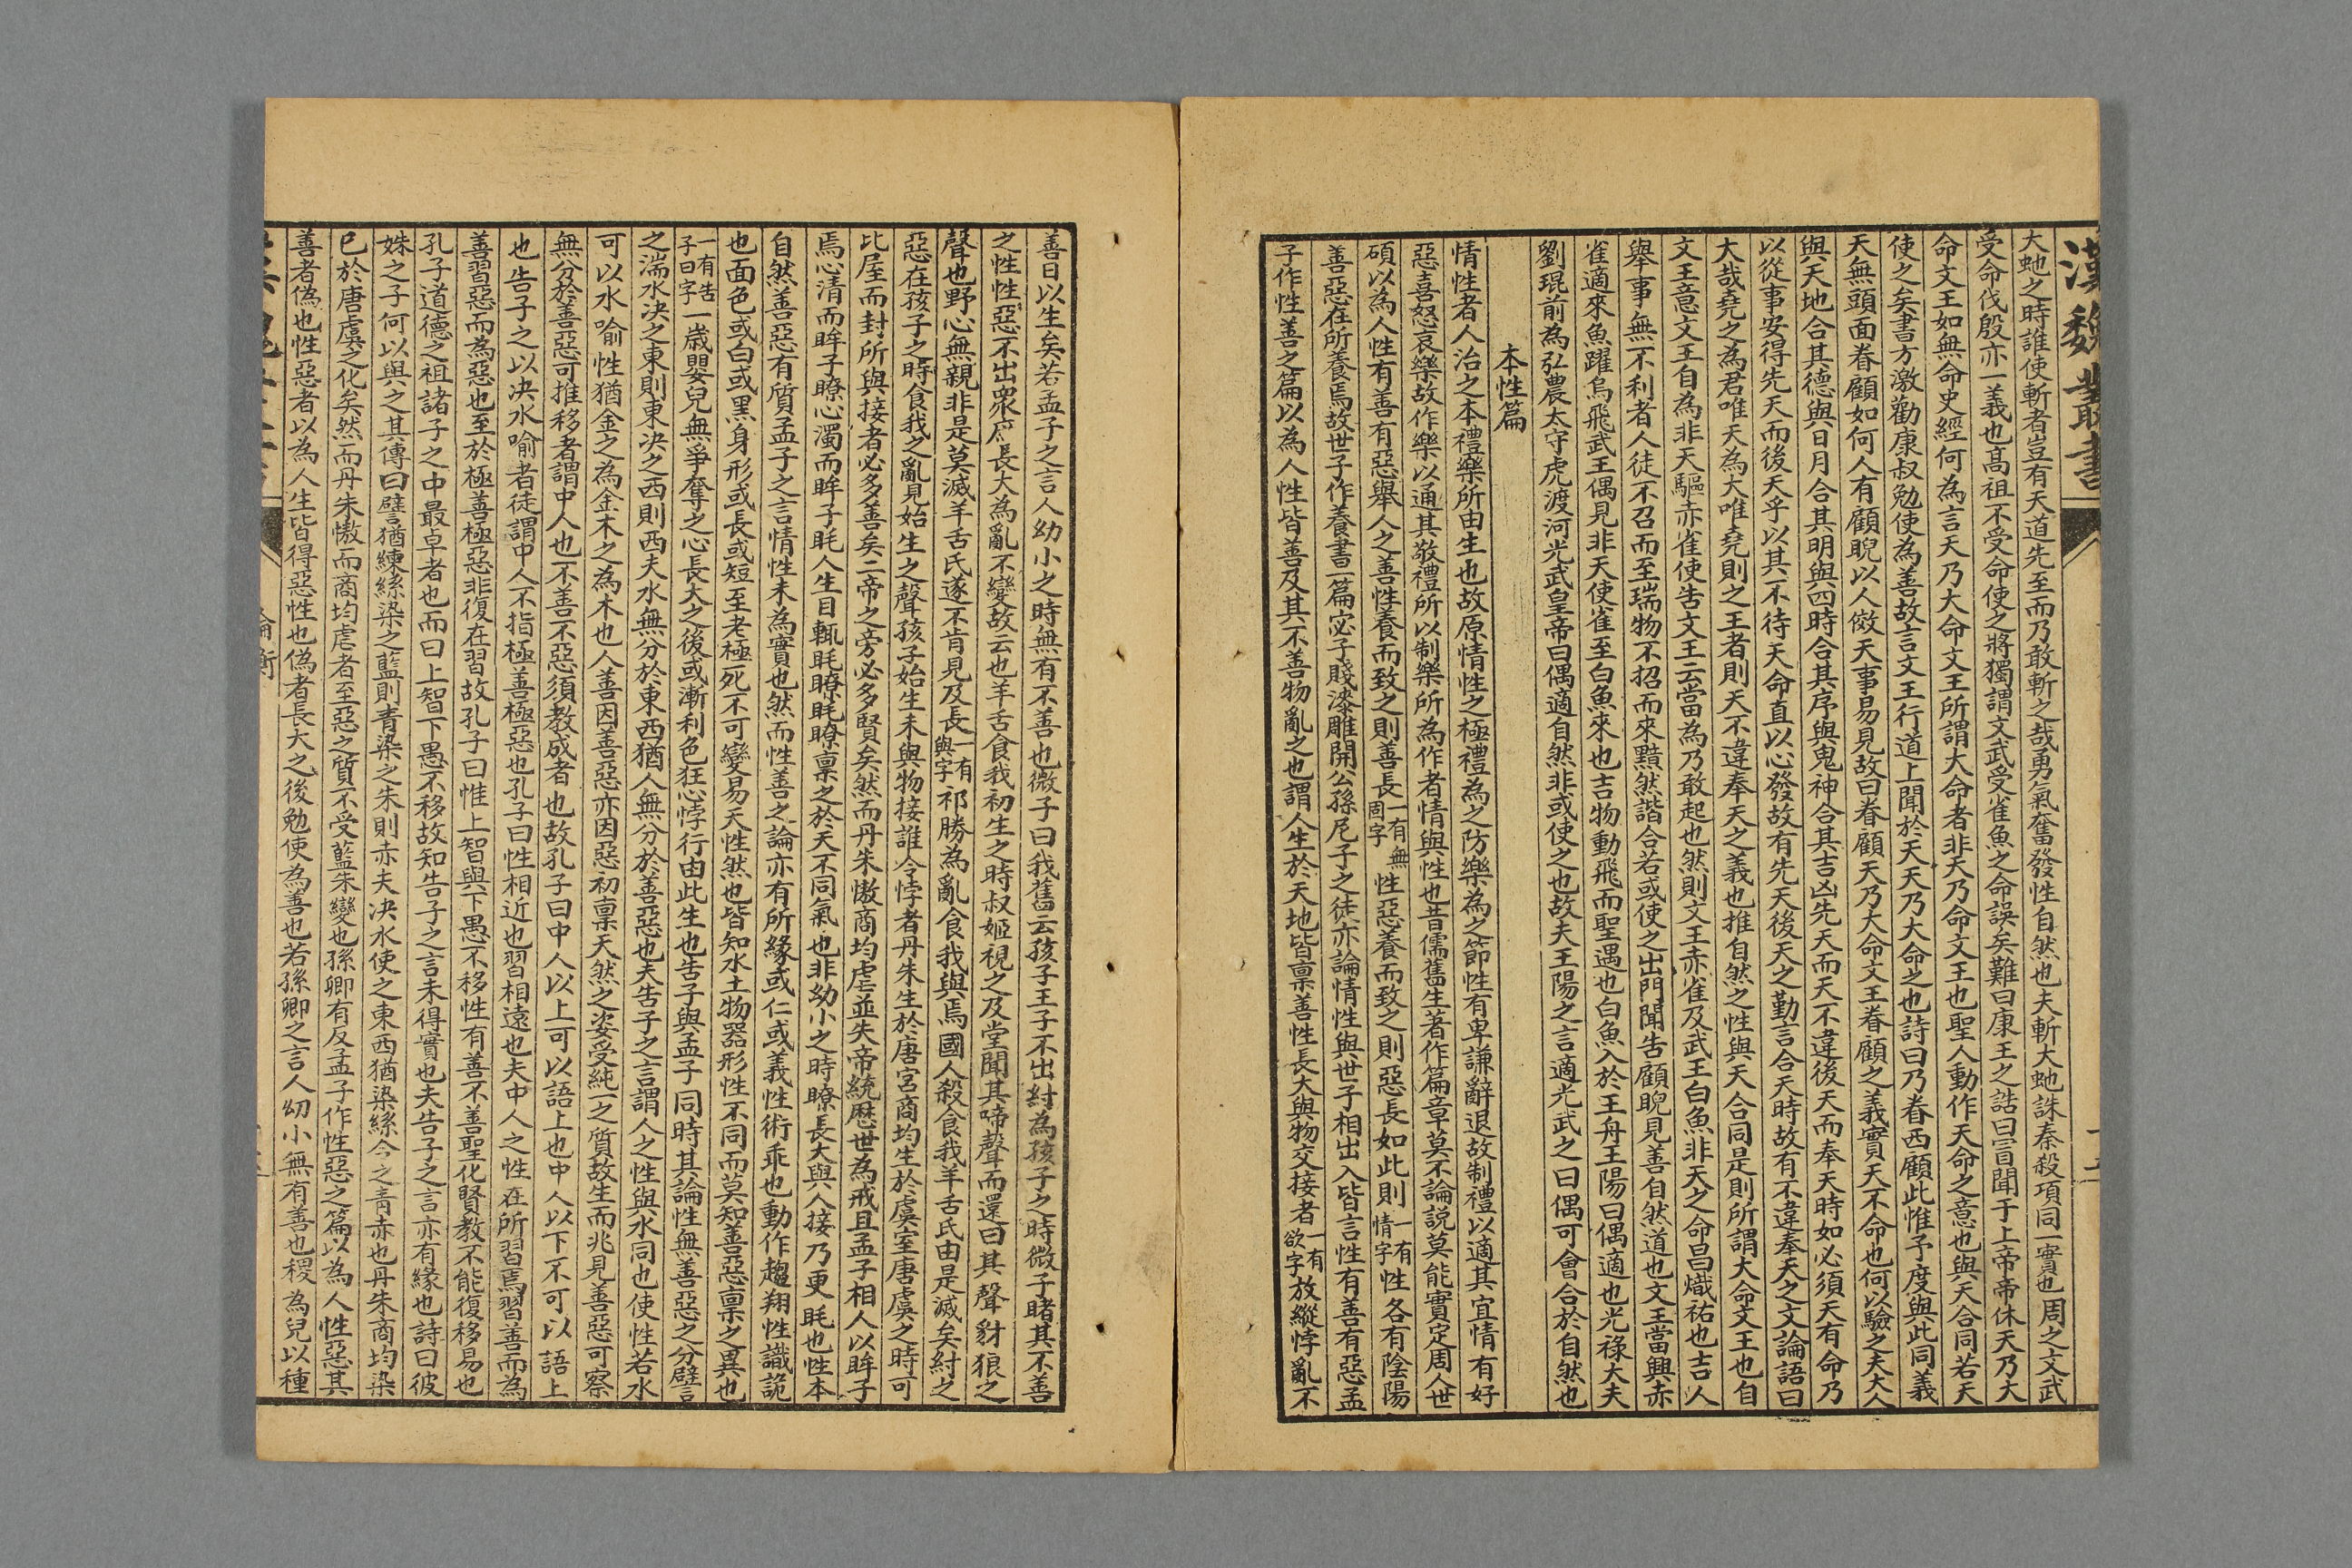 漢魏叢書
大虵之時誰使斬者豈有天道先至而乃敢斬之哉勇氣奮發性自然也夫斬大虵誅秦殺項同一實也周之文武
受命伐殷亦一義也高祖不受命使之將獨謂文武受雀魚之命誤矣難曰康王之誥曰冒聞于上帝帝休天乃大
命文王如無命史經何為言天乃大命文王所謂大命者非天乃命文王也聖人動作天命之意也與天合同若天
使之矣書方激勸康叔勉使為善故言文王行道上聞於天天乃大命之也詩曰乃眷西顧此惟予度與此同義
天無頭面眷顧如何人有顧睨以人傚天事易見故曰眷顧天乃大命文王眷顧之義實天不命也何以驗之夫大人
與天地合其德與日月合其明與四時合其序與鬼神合其吉凶先天而天不違後天而奉天時如必須天有命乃
以從事安得先天而後天乎以其不待天命直以心發故有先天後天之勤言合天時故有不違奉天之文論語曰
大哉堯之為君唯天為大唯堯則之王者則天不違奉天之義也推自然之性與天合同是則所謂大命文王也自
文王意文王自為非天驅赤雀使告文王云當為乃敢起也然則文王赤雀及武王白魚非天之命昌熾祐也吉人
舉事無不利者人徒不召而至瑞物不招而來黯然諧合若或使之出門聞告顧睨見善自然道也文王當興赤
雀適來魚躍烏飛武王偶見非天使雀至白魚來也吉物動飛而聖遇也白魚入於王舟王陽曰偶適也光祿大夫
劉琨前為弘農太守虎渡河光武皇帝曰偶適自然非或使之也故夫王陽之言適光武之曰偶可會合於自然也
本性篇
情性者人治之本禮樂所由生也故原情性之極禮為之防樂為之節性有卑謙辭退故制禮以適其宜情有好
惡喜怒哀樂故作樂以通其敬禮所以制樂所為作者情與性也昔儒舊生著作篇章莫不論說莫能實定周人世
碩以為人性有善有惡舉人之善性養而致之則善長一有無固字性惡養而致之則惡長如此則一有情字性各有陰陽
善惡在所養焉故世子作養書一篇宓子賤漆雕開公孫尼子之徒亦論情性與世子相出入皆言性有善有惡孟
子作性善之篇以為人性皆善及其不善物亂之也謂人生於天地皆稟善性長大與物交接者一有欲字放縱悖亂不
善日以生矣若孟子之言人幼小之時無有不善也微子曰我舊云孩子王子不出紂為孩子之時微子睹其不善
之性性惡不出眾庶長大為亂不變故云也羊舌食我初生之時叔姬視之及堂聞其啼聲而還曰其聲豺狼之
聲也野心無親非是莫滅羊舌氏遂不肯見及長一有與字祁勝為亂食我與焉國人殺食我羊舌氏由是滅矣紂之
惡在孩子之時食我之亂見始生之聲孩子始生未與物接誰令悖者丹朱生於唐宮商均生於虞室唐虞之時可
比屋而封所與接者必多善矣二帝之旁必多賢矣然而丹朱慠商均虐並失帝統歷世為戒且孟子相人以眸子
焉心清而眸子瞭心濁而眸子眊人生目輒眊瞭眊瞭稟之於天不同氣也非幼小之時瞭長大與人接乃更眊也性本
自然善惡有質孟子之言情性未為實也然而性善之論亦有所緣或仁或義性術乖也動作趨翔性識詭
也面色或白或黑身形或長或短至老極死不可變易天性然也皆知水土物器形性不同而莫知善惡稟之異也
一有告子曰字一歲嬰兒無爭奪之心長大之後或漸利色狂悖行由此生也告子與孟子同時其論性無善惡之分譬
之湍水決之東則東決之西則西夫水無分於東西猶人無分於善惡也夫告子之言謂人之性與水同也使性若水
可以水喻性猶金之為金木之為木也人善因善惡亦因惡初稟天然之姿受純一之質故生而兆見善惡可察
無分於善惡可推移者謂中人也不善不惡須教成者也故孔子曰中人以上可以語上也中人以下不可以語上
也告子之以决水喻者徒謂中人不指極善極惡也孔子曰性相近也習相遠也夫中人之性在所習焉習善而為
善習惡而為惡也至於極善極惡非復在習故孔子曰惟上智與下愚不移性有善不善聖化賢教不能復移易也
孔子道德之祖諸子之中最卓者也而曰上智下愚不移故知告子之言未得實也夫告子之言亦有緣也詩曰彼
姝之子何以與之其傳曰譬猶練絲染之藍則青染之朱則赤夫决水使之東西猶染絲令之青赤也丹朱商均染
已於唐虞之化矣然而丹朱慠而商均虐者至惡之質不受藍朱變也孫卿有反孟子作性惡之篇以為人性惡其
善者偽也性惡者以為人生皆得惡性也偽者長大之後勉使為善也若孫卿之言人幼小無有善也稷為兒以種